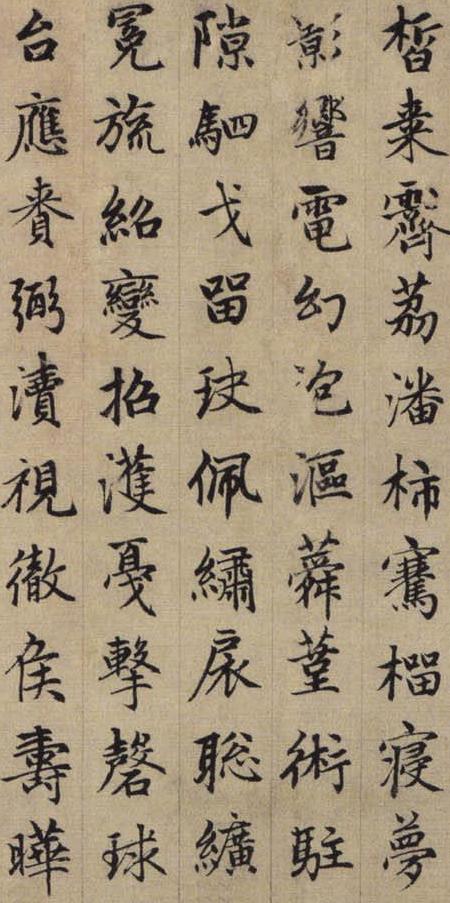 皙棗霽荔潘柿騫榴寢夢
影響電幻泡漚蕣堇術駐
隙駟戈留玦佩繡扆聡纊
冕旒紹變招濩戞擊磬球
台應賚弼瀆視徹侯壽曄